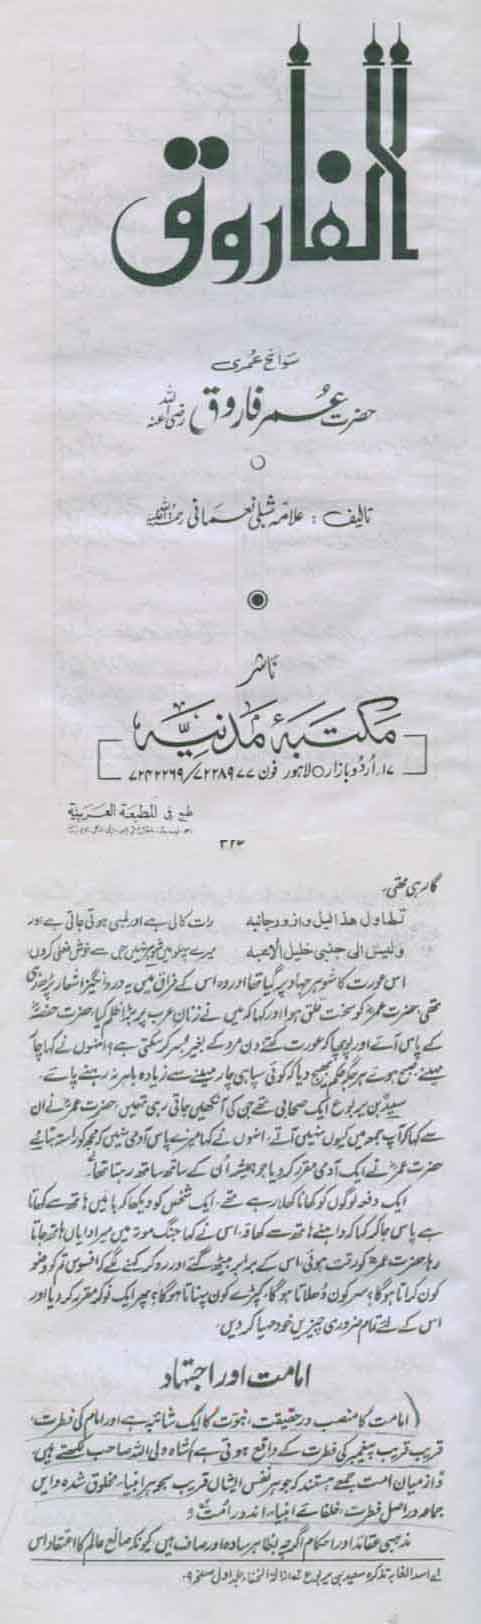 الفاروق
سوانح عمری
حضرت عمر فاروق رضی اللہ عنہ
تالیف : علامہ شبلی نعمانی
ناشر
مکتبۂ مدنیہ
۱۷۔ اُردو بازار ○ لاہور فون ۷۲۲۸۹۷۷ / ۷۲۴۲۲۶۹
طبع فی المطبعة العربية
۳۲۳
گا رہی تھی۔
تطاول هذا الیل وازور جانبه رات کالی ہے اور لمبی ہوتی جاتی ہے اور
ولیس الی جنبی خلیل الاعبه میرے پہلو میں شوہر نہیں جس سے خوش فعلی کروں
اس عورت کا شوہر جہاد پر گیا تھا اور وہ اس کے فراق میں یہ درد انگیز اشعار پڑھ رہی
تھی، حضرت عمرؓ کو سخت قلق ہوا اور کہا کہ میں نے زنان عرب پر بڑا ظلم کیا، حضرت حفصہؓ
کے پاس آئے اور پوچھا کہ عورت کتنے دن مرد کے بغیر بسر کر سکتی ہے؟ انہوں نے کہا چار
مہینے، صبح ہوتے ہر جگہ حکم بھیج دیا کہ کوئی سپاہی چار مہینے سے زیادہ باہر نہ رہنے پائے۔
سعید بن یربوع ایک صحابی تھے جن کی آنکھیں جاتی رہی تھیں، حضرت عمرؓ نے ان
سے کہا کہ آپ جمعہ میں کیوں نہیں آتے، انہوں نے کہا میرے پاس آدمی نہیں کہ مجھ کو راستہ بتائے
حضرت عمرؓ نے ایک آدمی مقرر کر دیا جو ہمیشہ اُن کے ساتھ ساتھ رہتا تھا۔
ایک دفعہ لوگوں کو کھانا کھلا رہے تھے، ایک شخص کو دیکھا کہ بائیں ہاتھ سے کھاتا
ہے پاس جا کر کہا کہ داہنے ہاتھ سے کھاؤ، اس نے کہا جنگ موتہ میں میرا دایاں ہاتھ جاتا
رہا حضرت عمرؓ کو رقت ہوئی، اس کے برابر بیٹھ گئے اور رو کر کہنے لگے کہ افسوس تم کو وضو
کون کراتا ہوگا؟ سر کون دُھلاتا ہوگا؟ کپڑے کون پہناتا ہوگا؟ پھر ایک نوکر مقرر کر دیا اور
اس کے لئے تمام ضروری چیزیں خود مہیا کر دیں۔
امامت اور اجتہاد
(امامت کا منصب درحقیقت، نبوّت کا ایک شائبہ ہے اور امام کی فطرت،
قریب قریب پیغمبر کی فطرت کے واقع ہوتی ہے) شاہ ولی اللہ صاحب لکھتے ہیں،
"از میان امت جمعے ہستند کہ جوہر نفس ایشاں قریب بجوہر انبیاء مخلوق شدہ و ایں
جماعہ در اصل فطرت، خلفائے انبیاء اند در امت"
مذہبی عقائد اور احکام اگرچہ بظاہر سادہ اور صاف ہیں کیونکہ صانع عالم کا اعتقاد اس
لے اسد الغابہ تذکرہ سعید بن یربوع ازالۃ الخفاء جلد اول صفحہ ۹